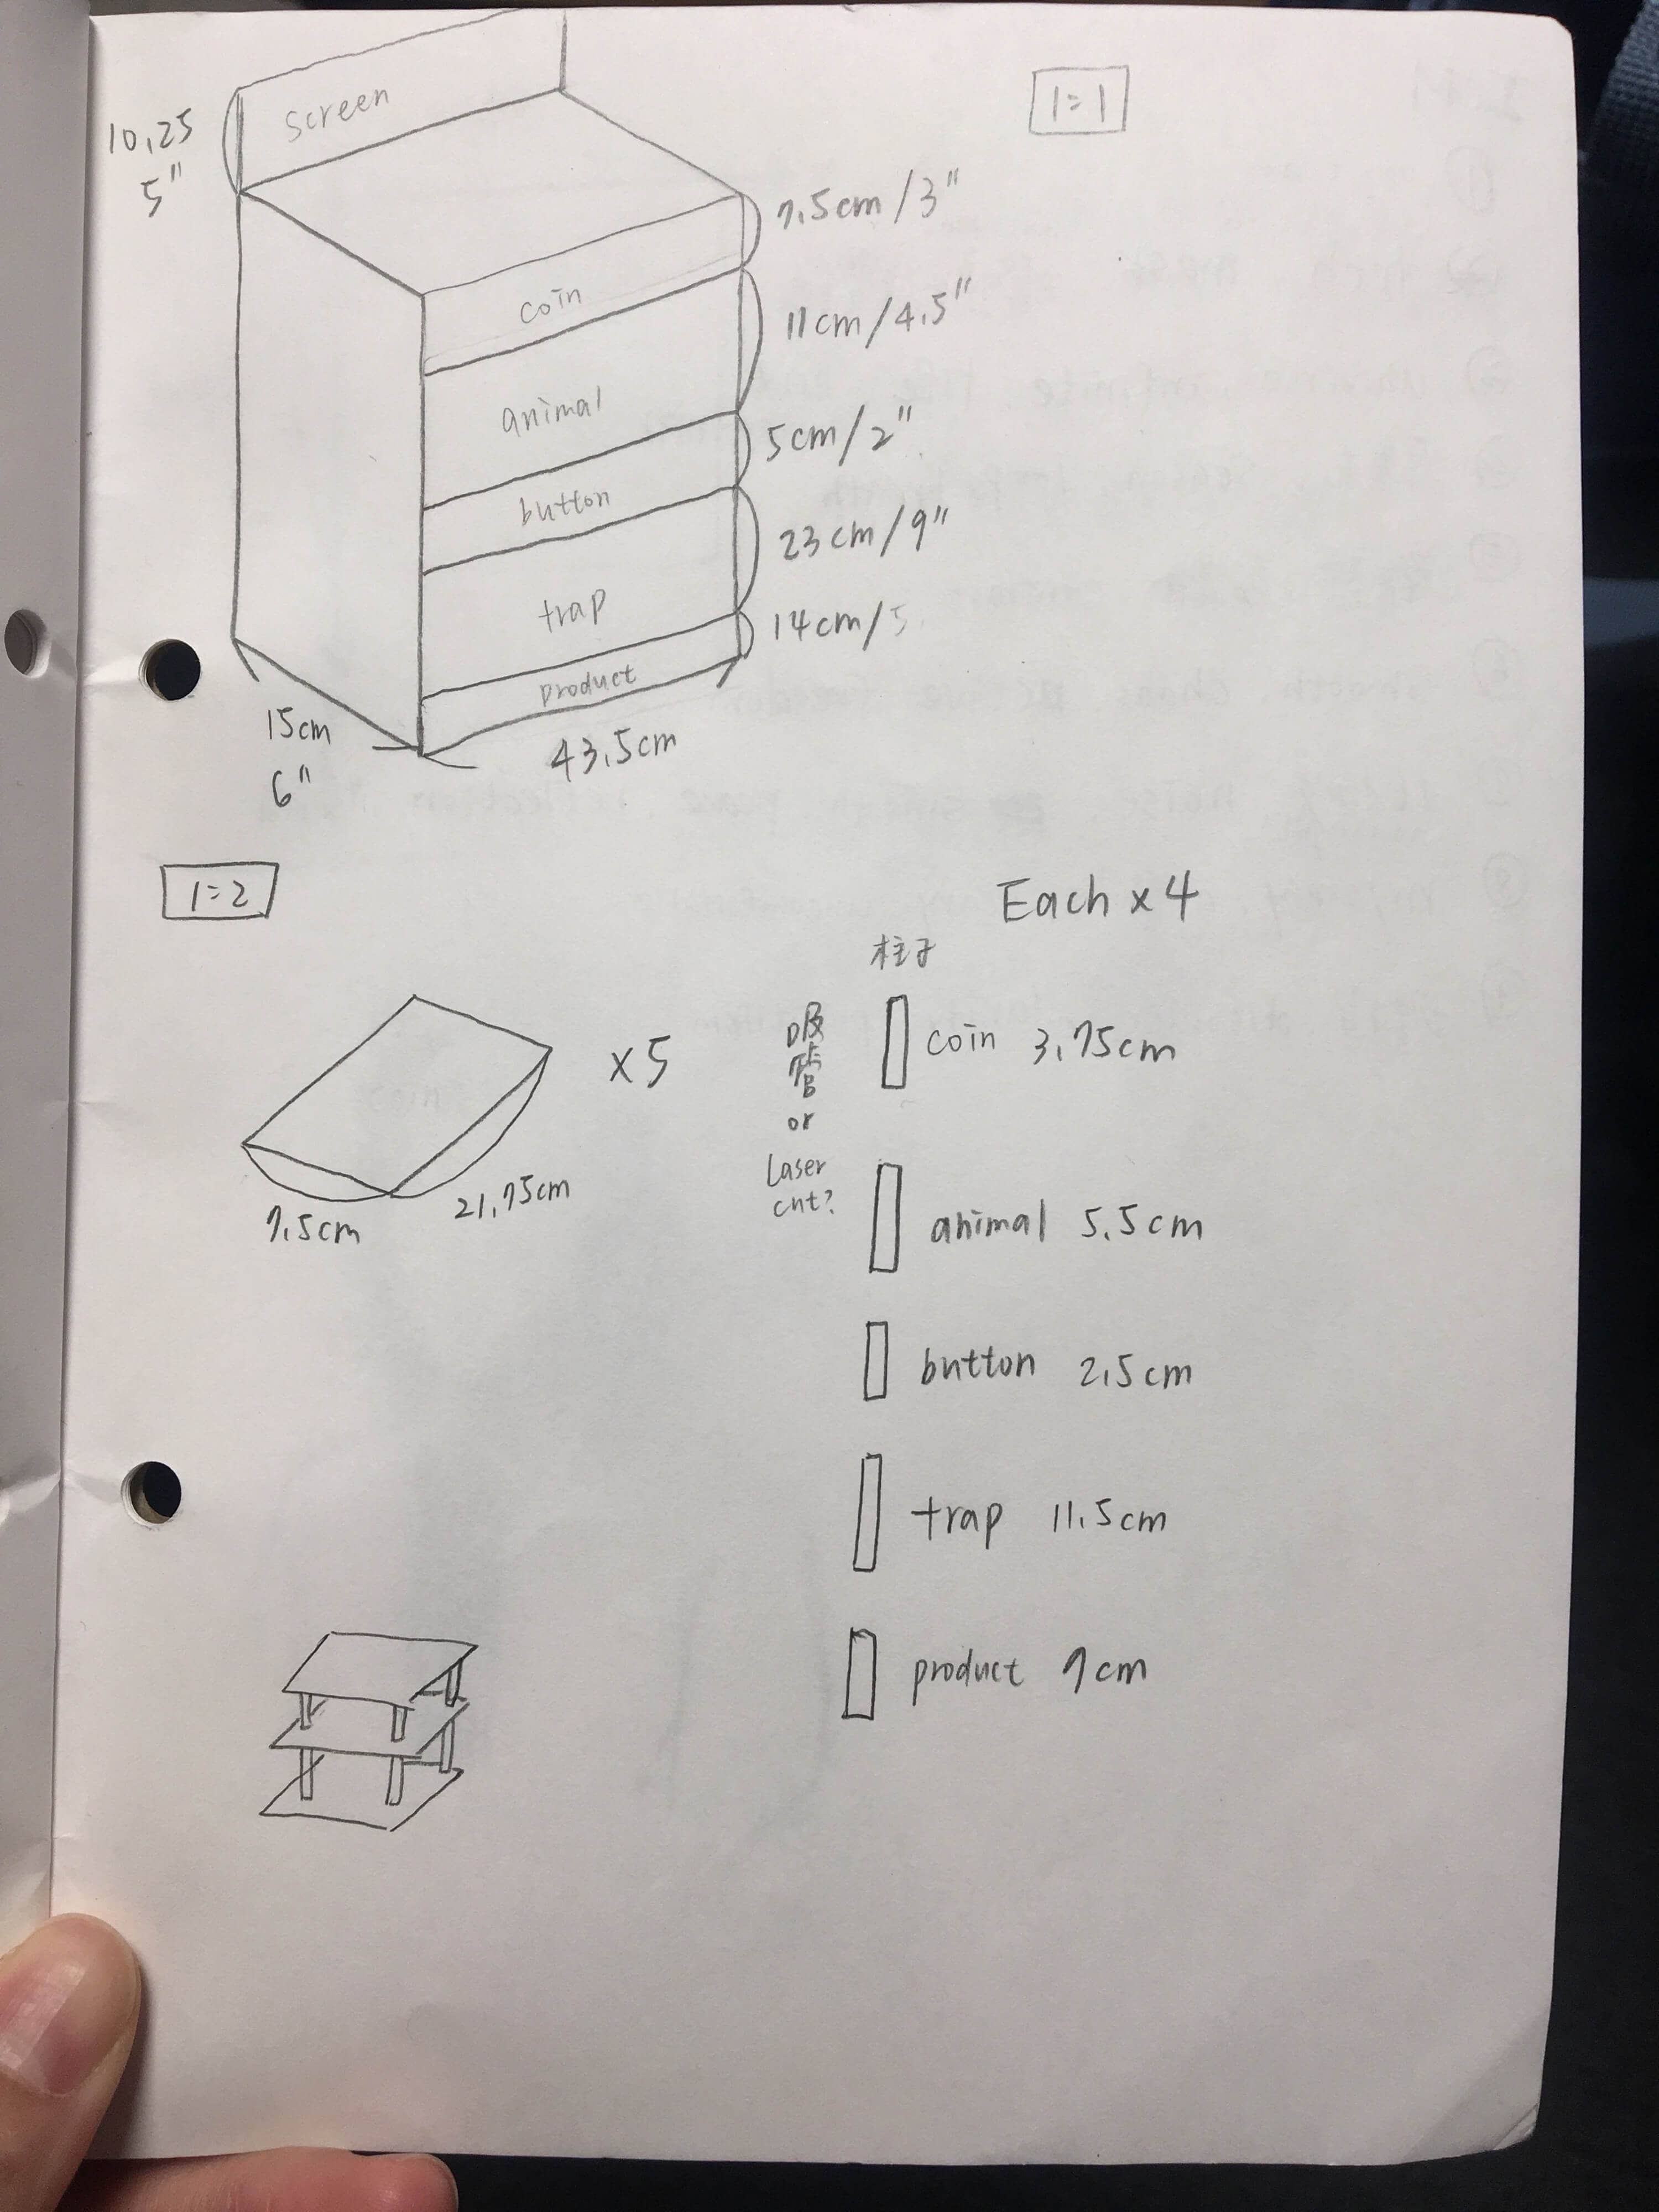 1=1
screen
10.25
5"
7.5cm/3"
coin
11cm/4.5"
animal
5cm/2"
button
23cm/9"
trap
14cm/5
product
15cm
6"
43.5cm
1=2
Each x 4
柱子
x5
7.5cm
21.75cm
吸管
or
Laser
cut?
coin 3.75cm
animal 5.5cm
button 2.5cm
trap 11.5cm
product 7cm